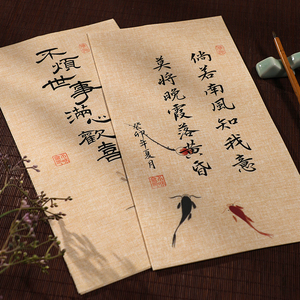 倘若南風知我意
莫將晚霞落黃昏
癸卯年夏月
不煩世事滿心歡喜